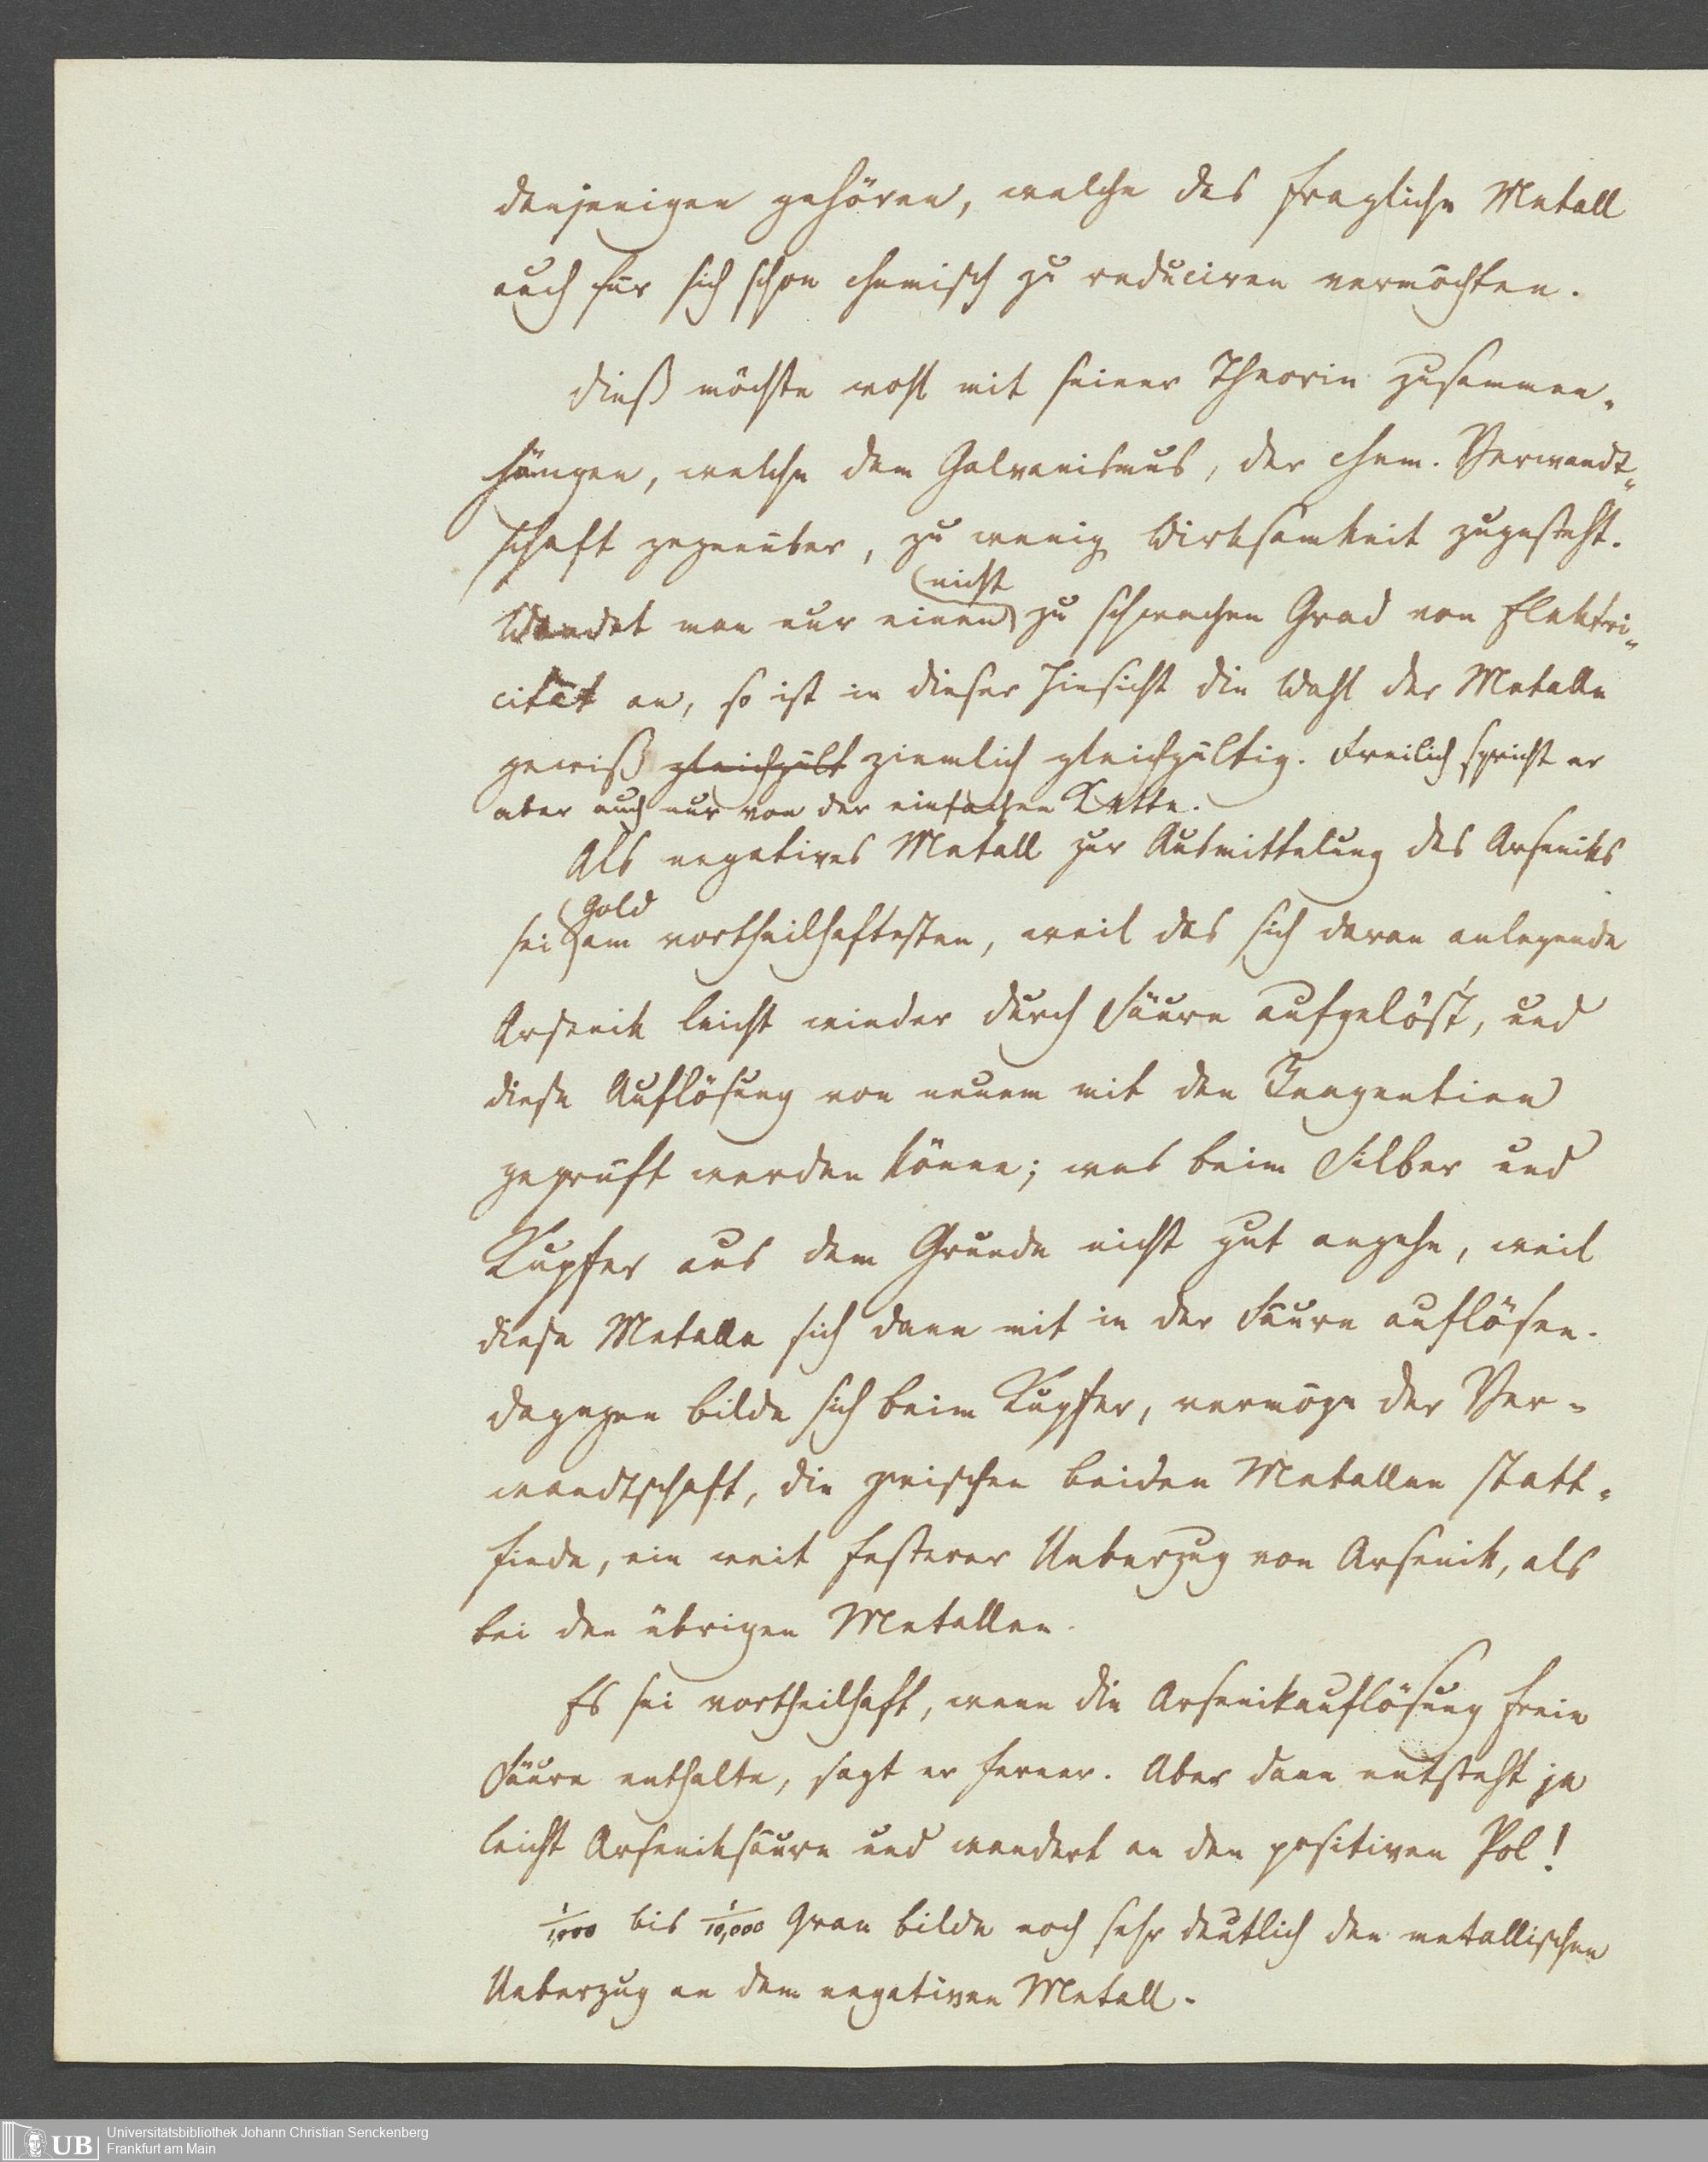 denjenigen gehören, welche das fragliche Metall
auch für sich schon chemisch zu reduciren vermöchten.
Dieß möchte wohl mit seiner Theorie zusammen-
hängen, welche dem Galvanismus, der chem. Verwandt-
schaft gegenüber, zu wenig Wirksamkeit zugesteht.
nicht
Wendet man nur einen zu schwachen Grad von Elektri-
cität an, so ist in dieser Hinsicht die Wahl der Metalle
gewiß gleichgült ziemlich gleichgültig. Freilich spricht er
aber auch nur von der einfachen Kette.
Als negatives Metall zur Ausmittelung des Arseniks
Gold
sei am vortheilhaftesten, weil das sich daran anlegende
Arsenik leicht wieder durch Säure aufgelöst, und
diese Auflösung von neuem mit den Reagentien
geprüft werden könne; was beim Silber und
Kupfer aus dem Grunde nicht gut angehe, weil
diese Metalle sich dann mit in der Säure auflösen.
Dagegen bilde sich beim Kupfer, vermöge der Ver-
wandtschaft, die zwischen beiden Metallen statt-
finde, ein weit festerer Ueberzug von Arsenik, als
bei den übrigen Metallen.
Es sei vortheilhaft, wenn die Arsenikauflösung freie
Säure enthalte, sagt er ferner. Aber dann entsteht ja
leicht Arseniksäure und wandert an den positiven Pol!
1/1,000 bis 1/10,000 Gran bilde noch sehr deutlich den metallischen
Ueberzug an dem negativen Metall.
UB
Universitätsbibliothek Johann Christian Senckenberg
Frankfurt am Main